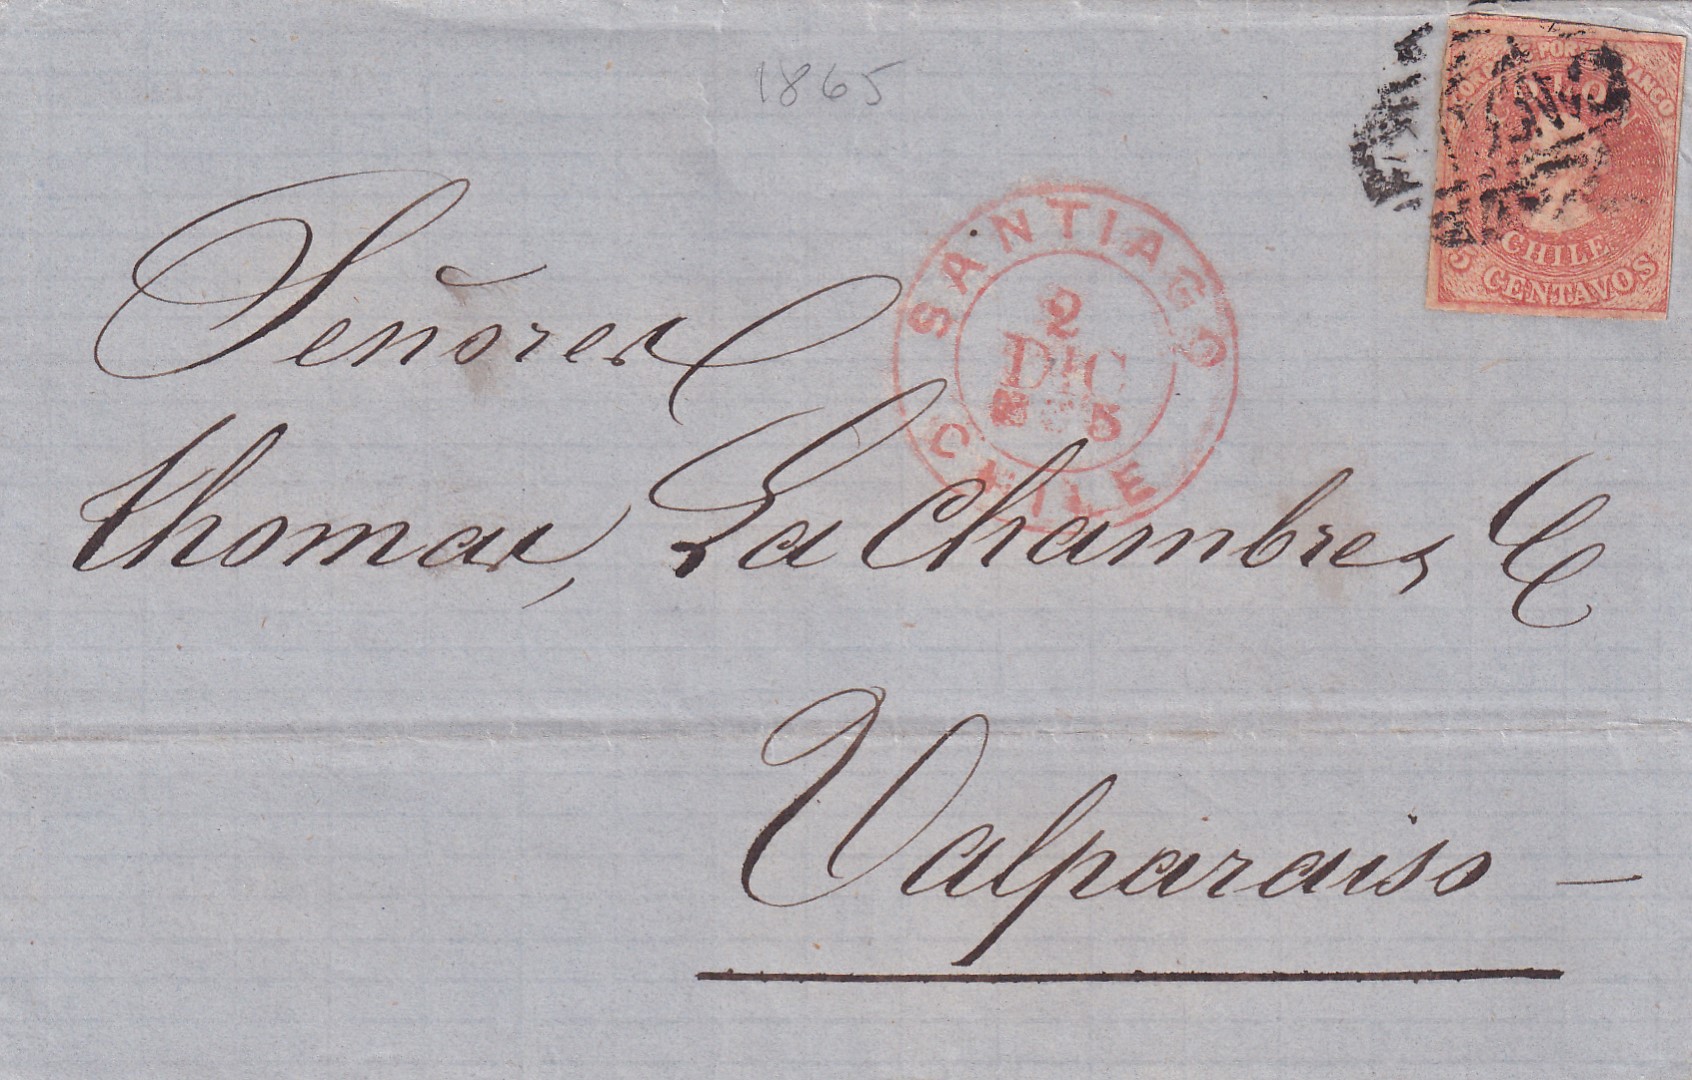 1865
COLON PORTE FRANCO
CHILE
5 CENTAVOS
SANTIAGO
2
DIC
CHILE
Señores
Thomas, La Chambre, & C
Valparaiso –